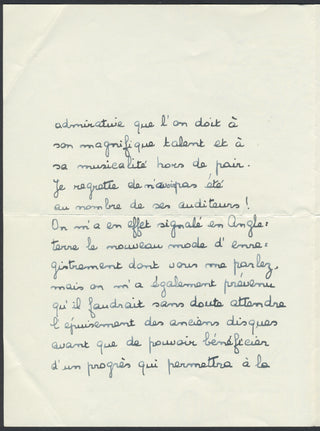 admirative que l'on doit à
son magnifique talent et à
sa musicalité hors de pair.
Je regrette de n'avoir pas été
au nombre de ses auditeurs !
On m'a en effet signalé en Angle=
terre le nouveau mode d'enre=
gistrement dont vous me parlez,
mais on m'a également prévenu
qu'il faudrait sans doute attendre
l'épuisement des anciens disques
avant que de pouvoir bénéficier
d'un progrès qui permettra à la